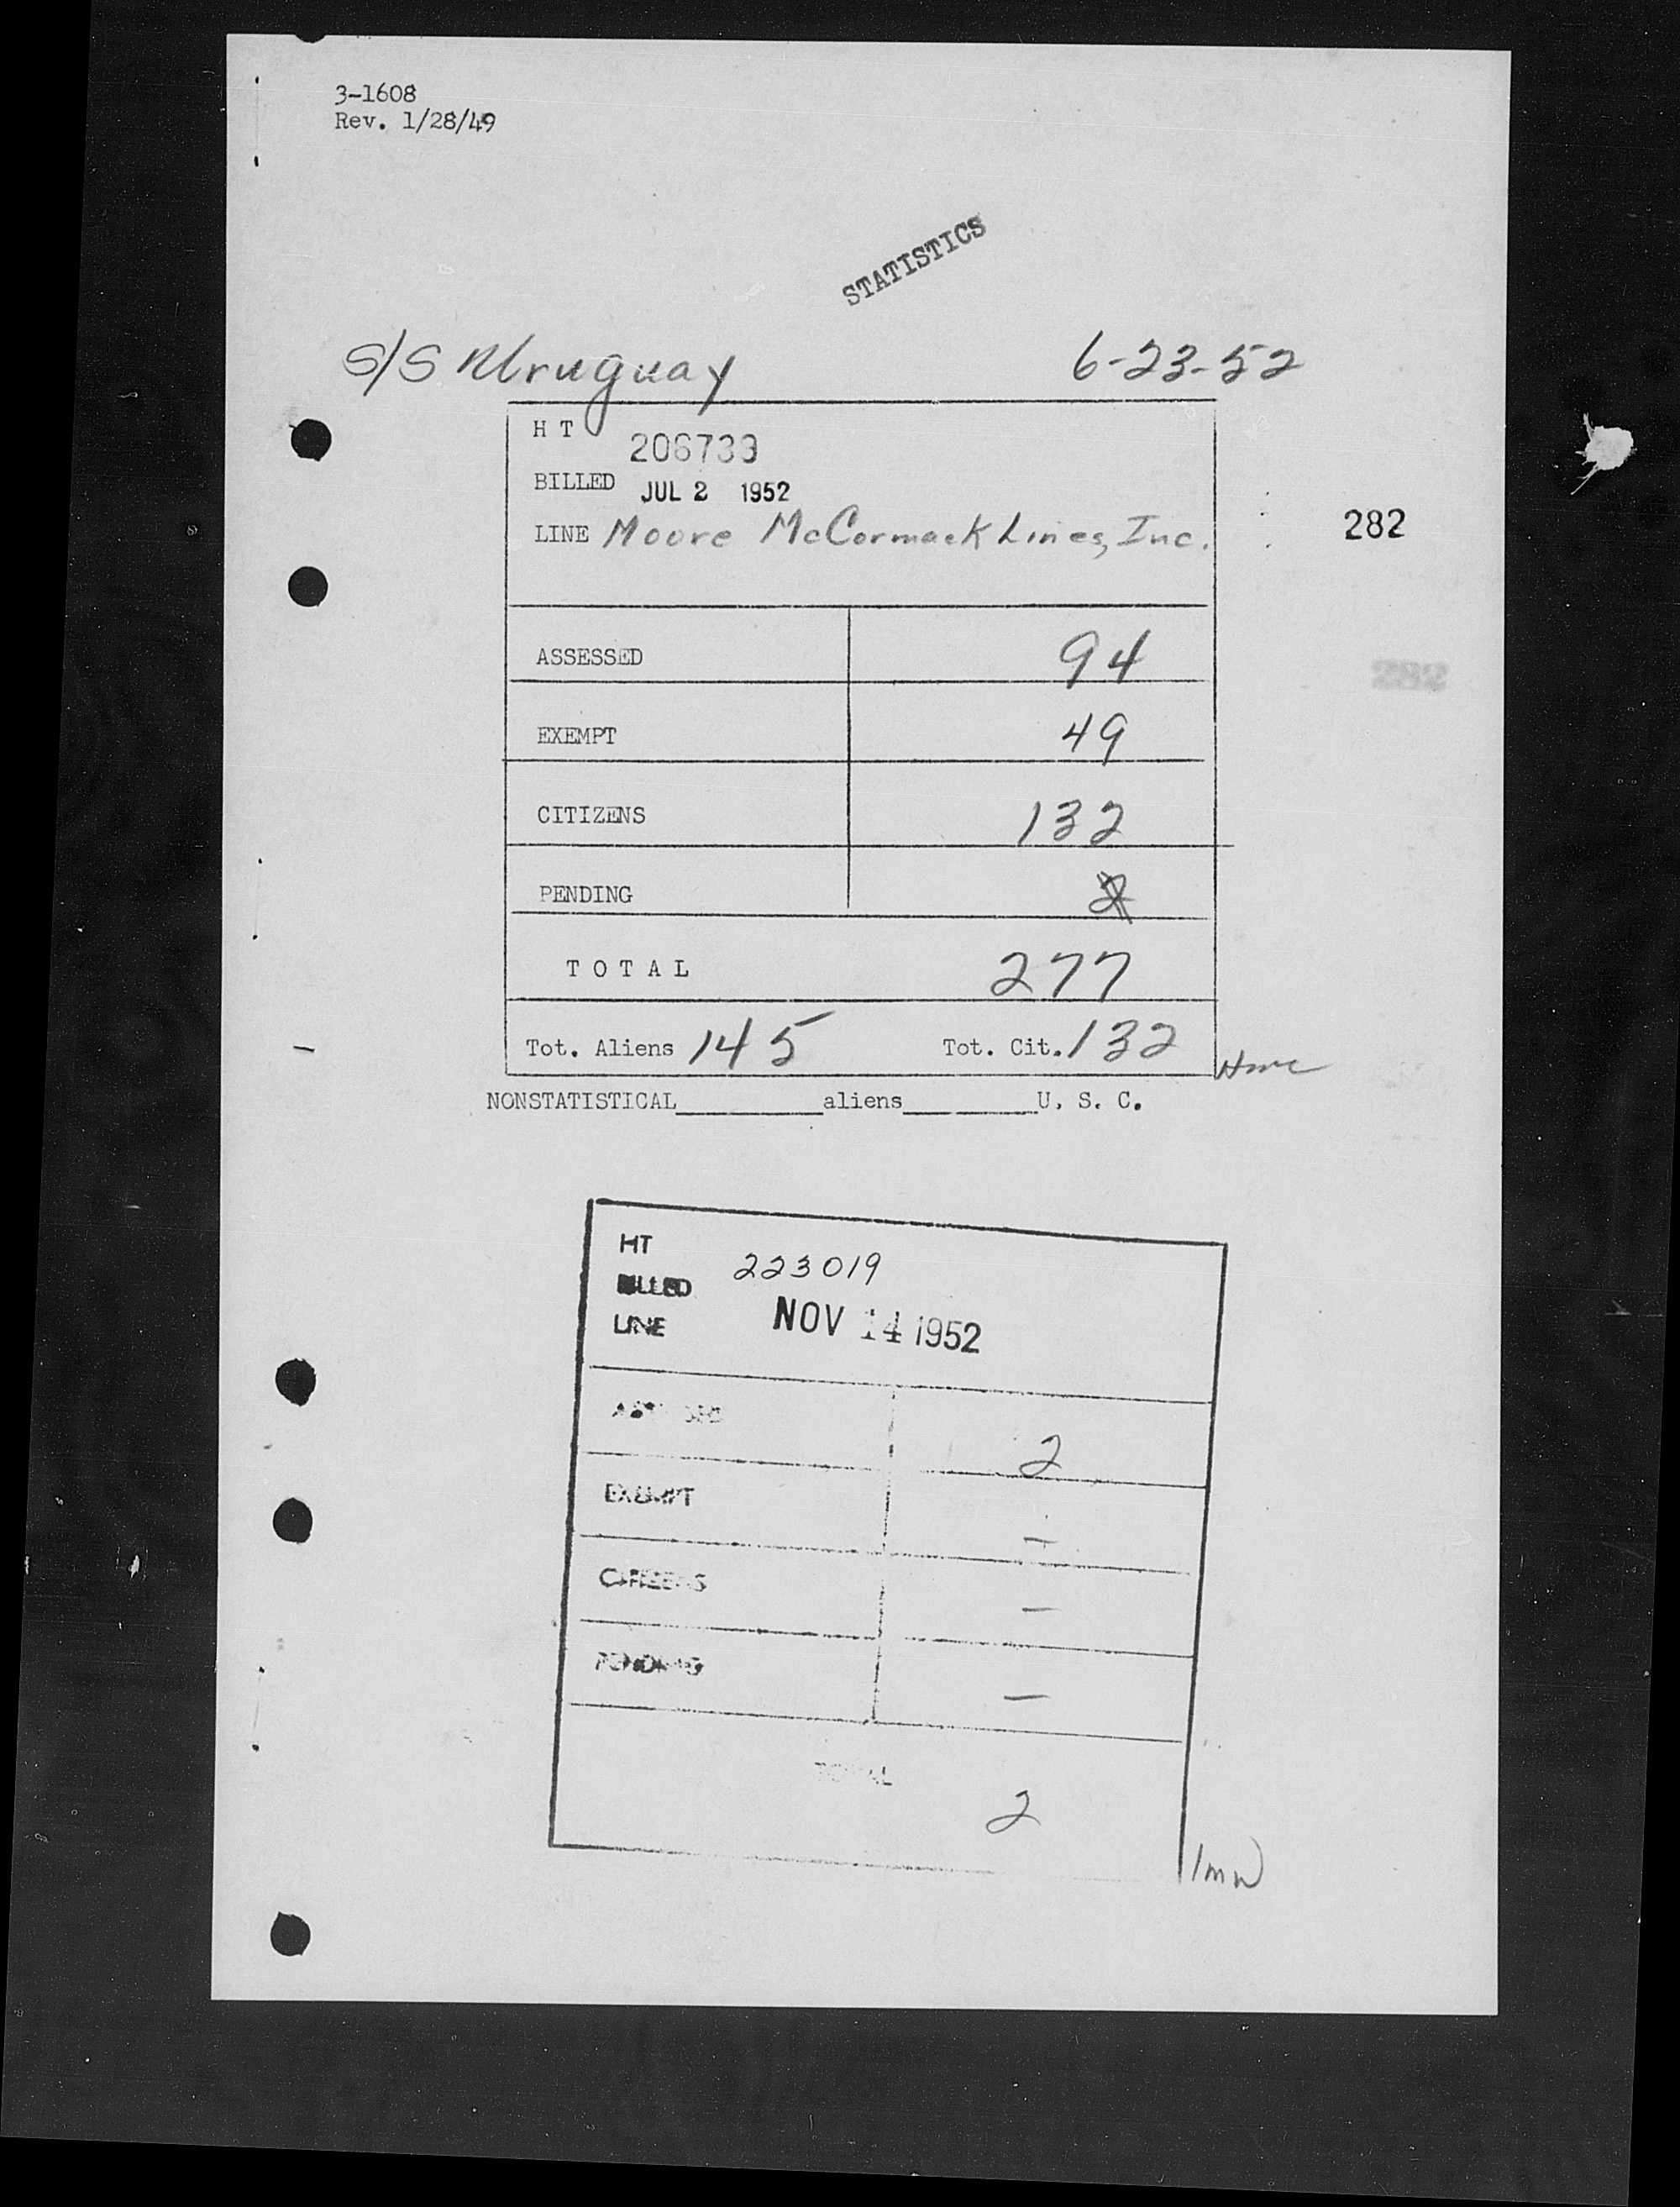 3-1608
Rev. 1/28/49
STATISTICS
S/S Uruguay 6-23-52
H T 206733
BILLED JUL 2 1952
LINE Moore McCormack Lines, Inc.
282
ASSESSED 94
EXEMPT 49
CITIZENS 132
PENDING 2
TOTAL 277
Tot. Aliens 145 Tot. Cit. 132
NONSTATISTICAL aliens U. S. C.
HT 223019
BILLED
LINE NOV 14 1952
2
EXEMPT –
CITIZENS –
PENDING –
TOTAL
2